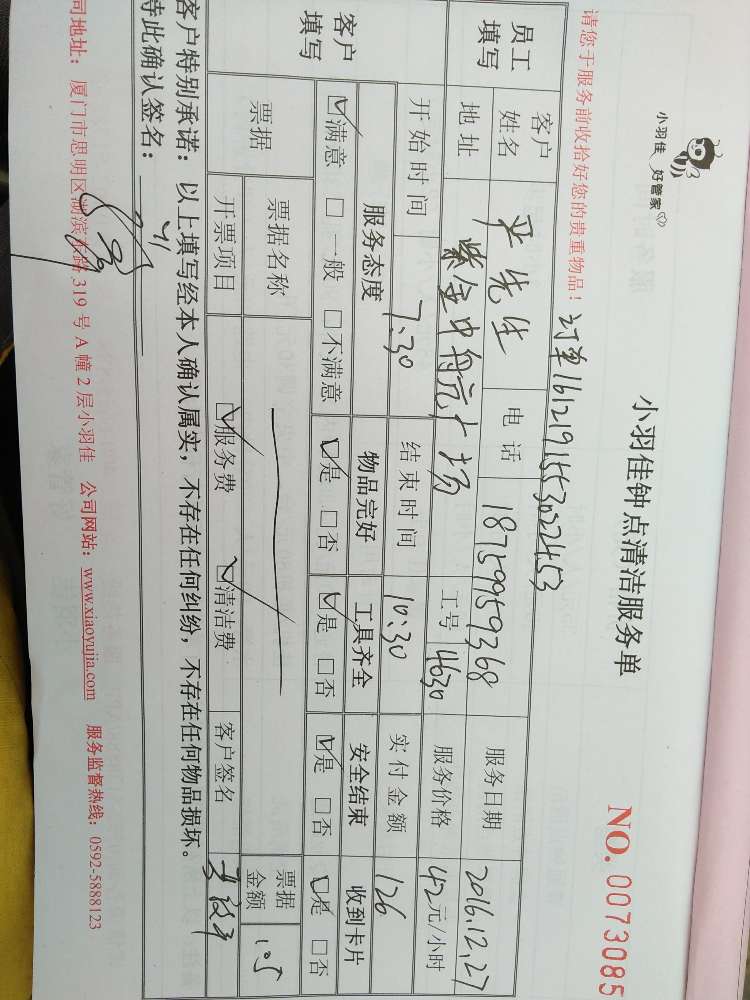 小羽佳 好管家
小羽佳钟点清洁服务单
NO. 0073085
请您于服务前收拾好您的贵重物品！ 订单1612191553022453
员工填写
客户姓名 先生 电话 18759959368 服务日期 2016.12.27
地址 紫金中舟元广场 工号 4630 服务价格 42元/小时
开始时间 7:30 结束时间 10:30 实付金额 126
客户填写
服务态度 物品完好 工具齐全 安全结束 收到卡片
☑满意 □一般 □不满意 ☑是 □否 ☑是 □否 ☑是 □否 ☑是 □否
票据 票据名称 票据金额 105
开票项目 ☑服务费 ☑清洁费 客户签名
客户特别承诺：以上填写经本人确认属实，不存在任何纠纷，不存在任何物品损坏。
特此确认签名：
司地址： 厦门市思明区湖滨东路319号A幢2层小羽佳 公司网站：www.xiaoyujia.com 服务监督热线：0592-5888123